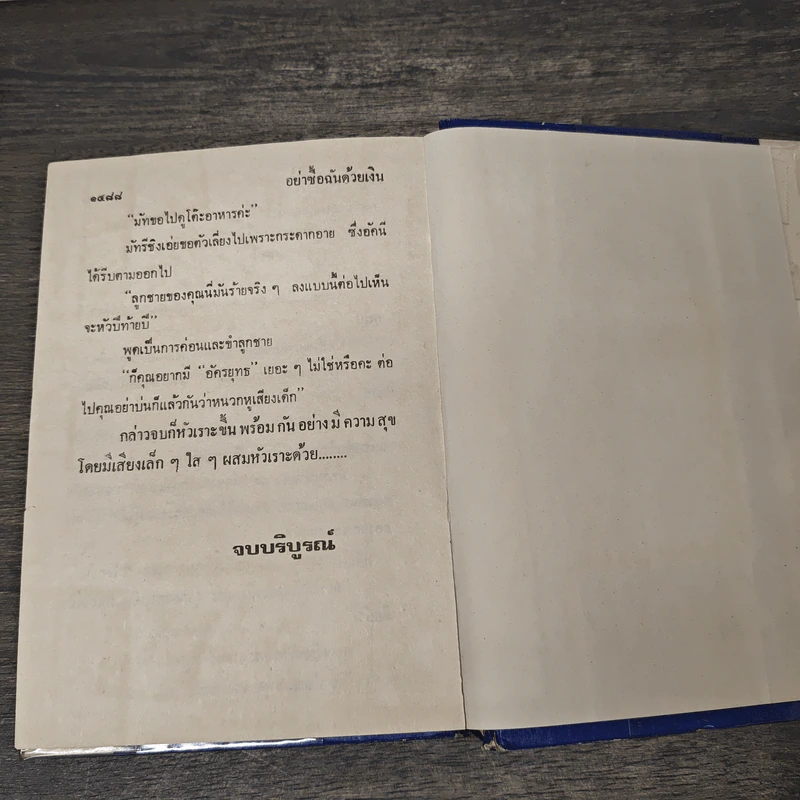 ๑๕๘๘
อย่าซื้อฉันด้วยเงิน
“มัทขอไปดูโต๊ะอาหารค่ะ”
มัทรีชิงเอ่ยขอตัวเลี่ยงไปเพราะกระดากอาย ซึ่งอัคนี
ได้รีบตามออกไป
“ลูกชายของคุณนี่มันร้ายจริง ๆ ลงแบบนี้ต่อไปเห็น
จะหัวปีท้ายปี”
พูดเป็นการค่อนและขำลูกชาย
“ก็คุณอยากมี “อัครยุทธ” เยอะ ๆ ไม่ใช่หรือคะ ต่อ
ไปคุณอย่าบ่นก็แล้วกันว่าหนวกหูเสียงเด็ก”
กล่าวจบก็หัวเราะขึ้น พร้อม กัน อย่าง มี ความ สุข
โดยมีเสียงเล็ก ๆ ใส ๆ ผสมหัวเราะด้วย........
จบบริบูรณ์